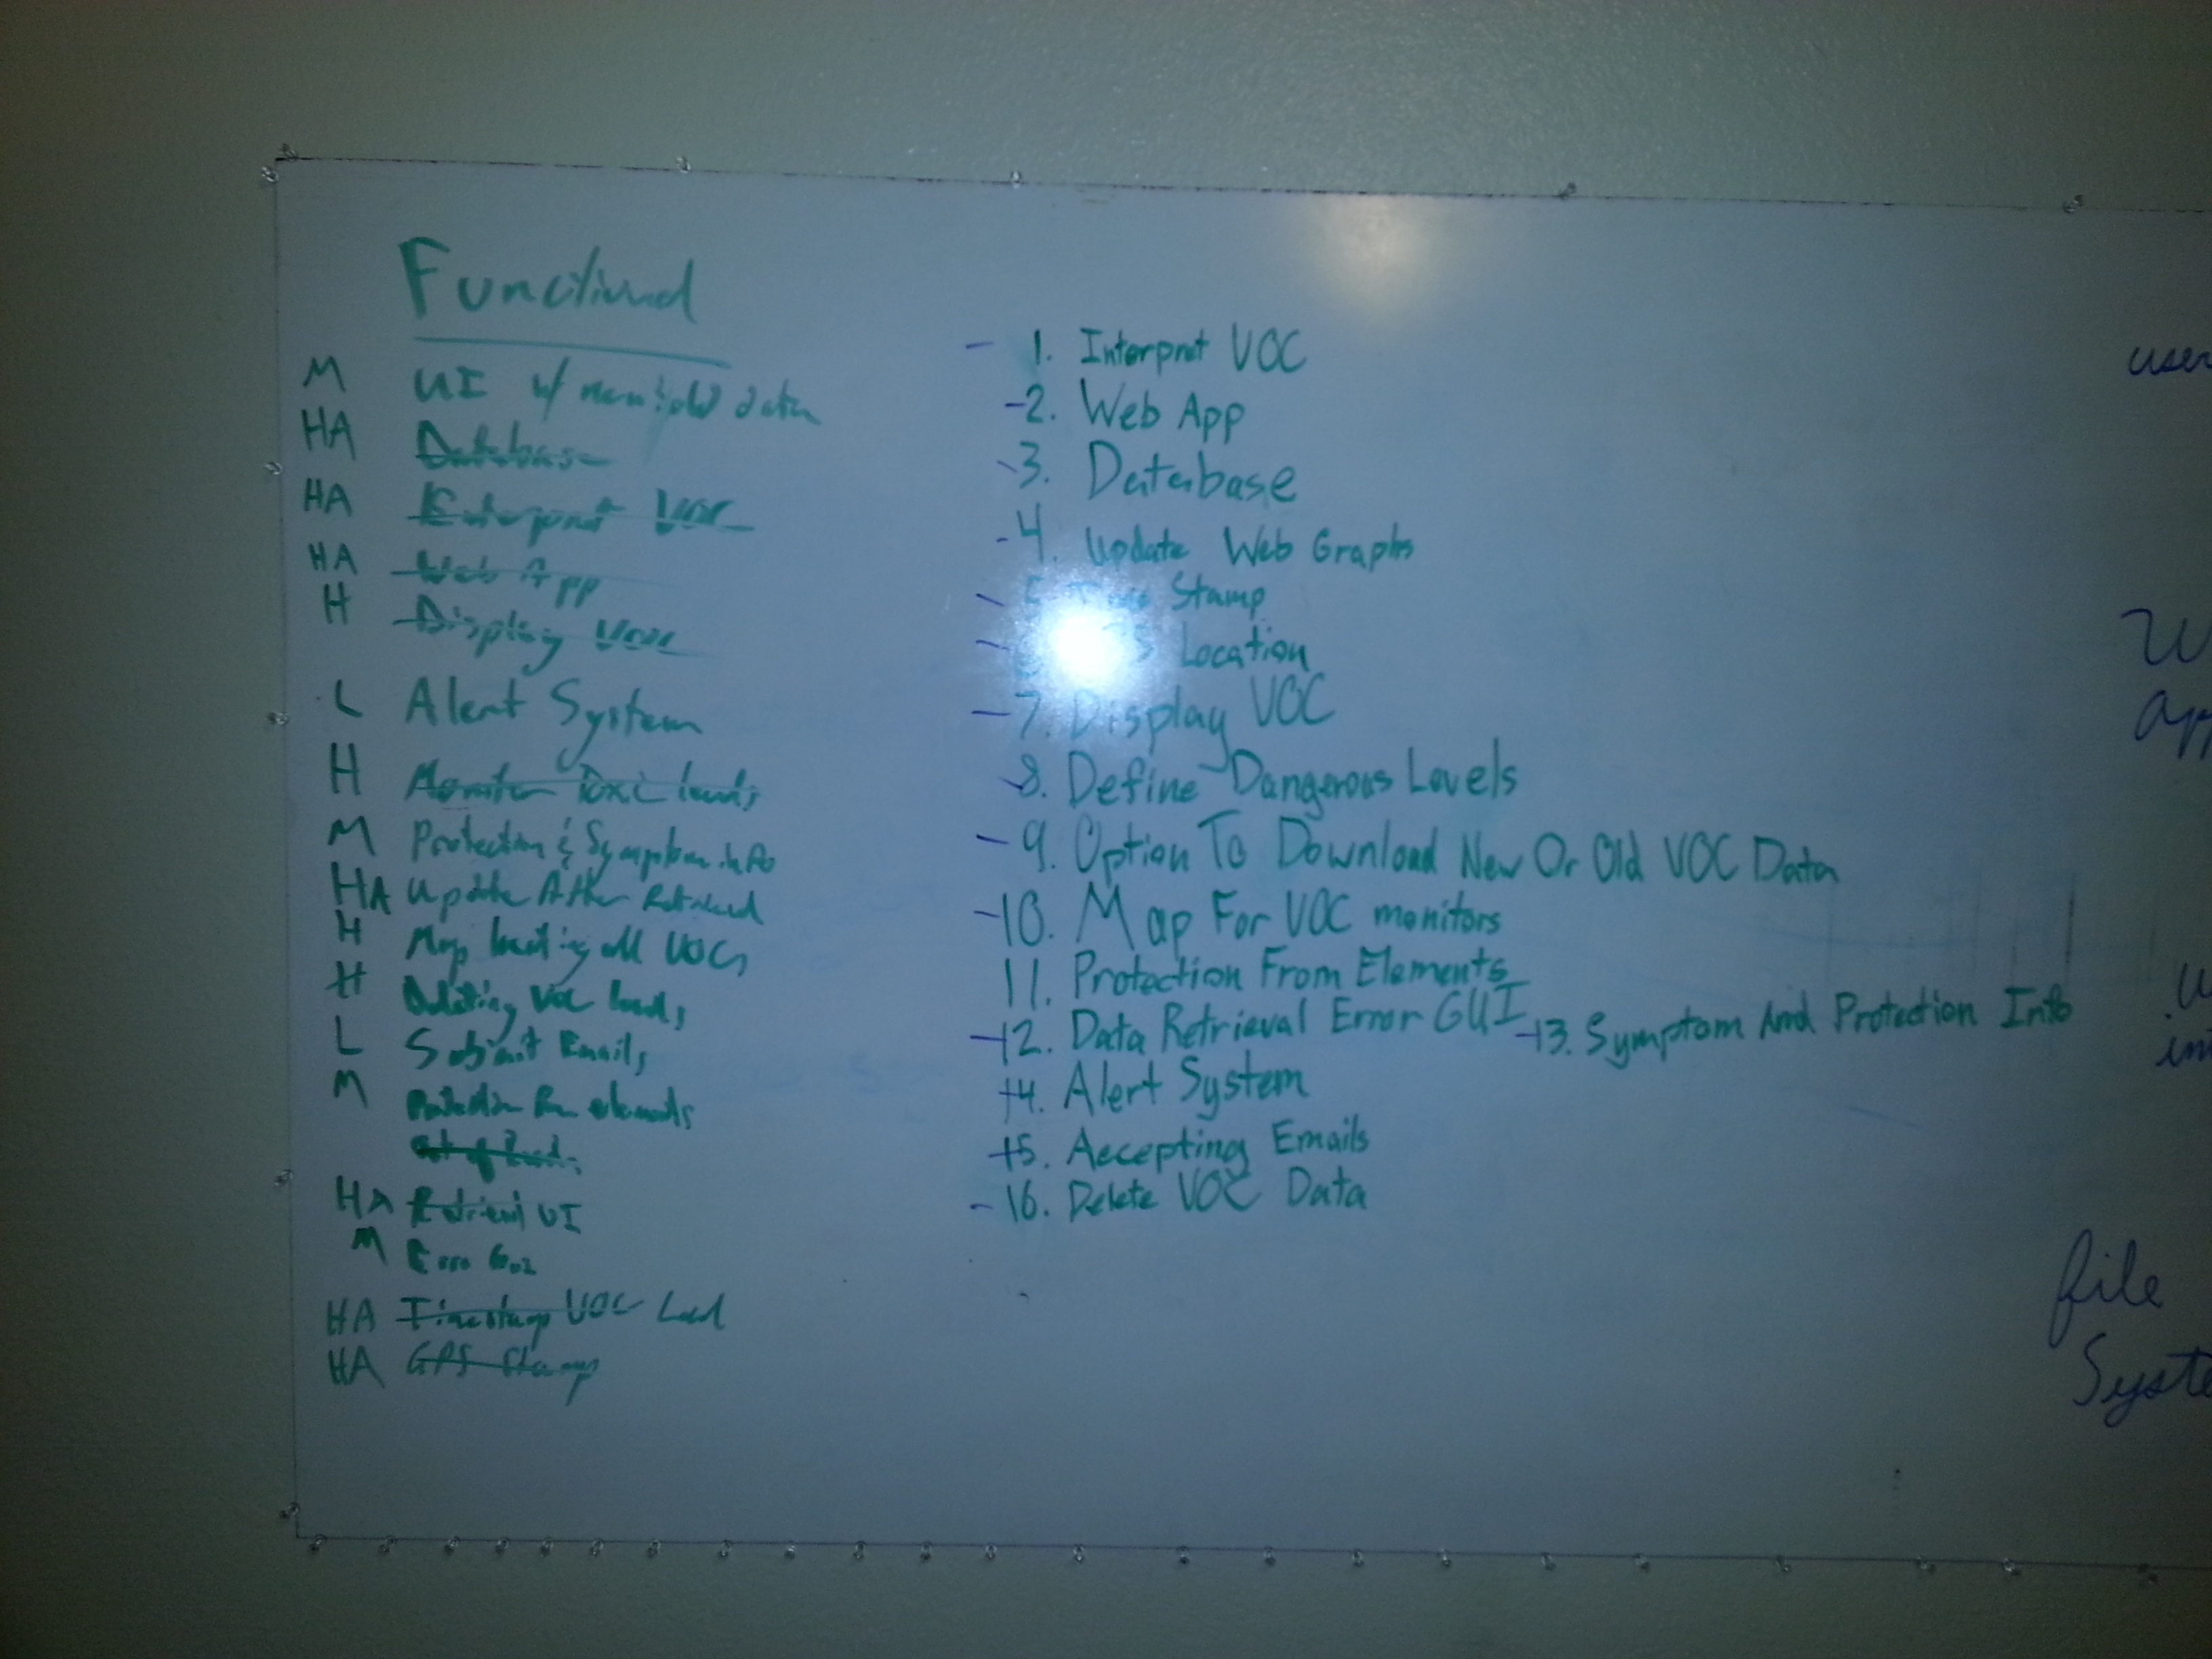 Functional
M UI w/ data
HA Database
HA Interpret VOC
HA Web App
H Display VOC
L Alert System
H Monitor Toxic levels
M Protection & Symptom info
HA Update After Retrieved
H Map locating all VOCs
H Deleting VOC levels
L Submit Emails
M Protection from elements
HA Retrieval UI
M Error GUI
HA Timestamp VOC Level
HA GPS Stamp
- 1. Interpret VOC
- 2. Web App
- 3. Database
- 4. Update Web Graphs
- 5. Time Stamp
- Location
- 7. Display VOC
- 8. Define Dangerous Levels
- 9. Option To Download New Or Old VOC Data
- 10. Map For VOC monitors
11. Protection From Elements
- 12. Data Retrieval Error GUI
- 13. Symptom And Protection Info
- 14. Alert System
- 15. Accepting Emails
- 16. Delete VOC Data
user
W
app
file
Syste